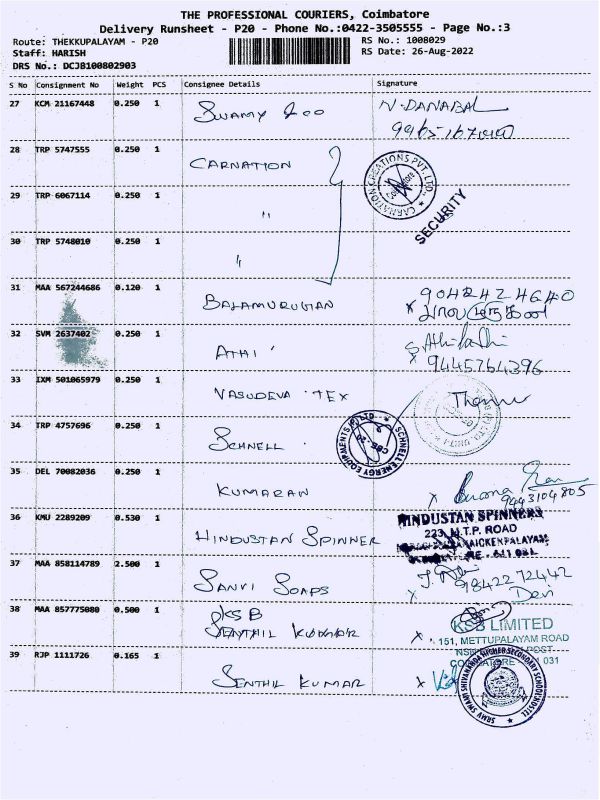 THE PROFESSIONAL COURIERS, Coimbatore
Delivery Runsheet - P20 - Phone No.:0422-3505555 - Page No.:3
Route: THEKKUPALAYAM - P20
RS No.: 1008029
Staff: HARISH
RS Date: 26-Aug-2022
DRS No.: DCJB100802903
S No Consignment No Weight PCS Consignee Details Signature
27 KCM 21167448 0.250 1 SWAMY & CO N. DANABAL
28 TRP 5747555 0.250 1 CARNATION
CARNATION CREATIONS PVT. LTD.
29 TRP 6067114 0.250 1 "
SECURITY
30 TRP 5748010 0.250 1 "
31 MAA 567244686 0.120 1 BALAMURUGAN 9042424640
32 SVM 2637402 0.250 1 ATHI
x 9445764396
33 IXM 501065979 0.250 1 VASUDEVA TEX
34 TRP 4757696 0.250 1 SCHNELL
SCHNELL ENERGY EQUIPMENTS (P) LTD
35 DEL 70082036 0.250 1 KUMARAN x
9443104805
36 KMU 2289209 0.530 1 HINDUSTAN SPINNER
HINDUSTAN SPINNERS
223, M.T.P. ROAD
37 MAA 858114789 2.500 1 SANVI SOAPS x 9842272442
Devi
38 MAA 857775080 0.500 1 KSB
SENTHIL KUMAR x
KSB LIMITED
151, METTUPALAYAM ROAD
POST
031
39 RJP 1111726 0.165 1 SENTHIL KUMAR x
SRMV SWAMI SHIVANANDA HIGHER SECONDARY SCHOOL HOSTEL